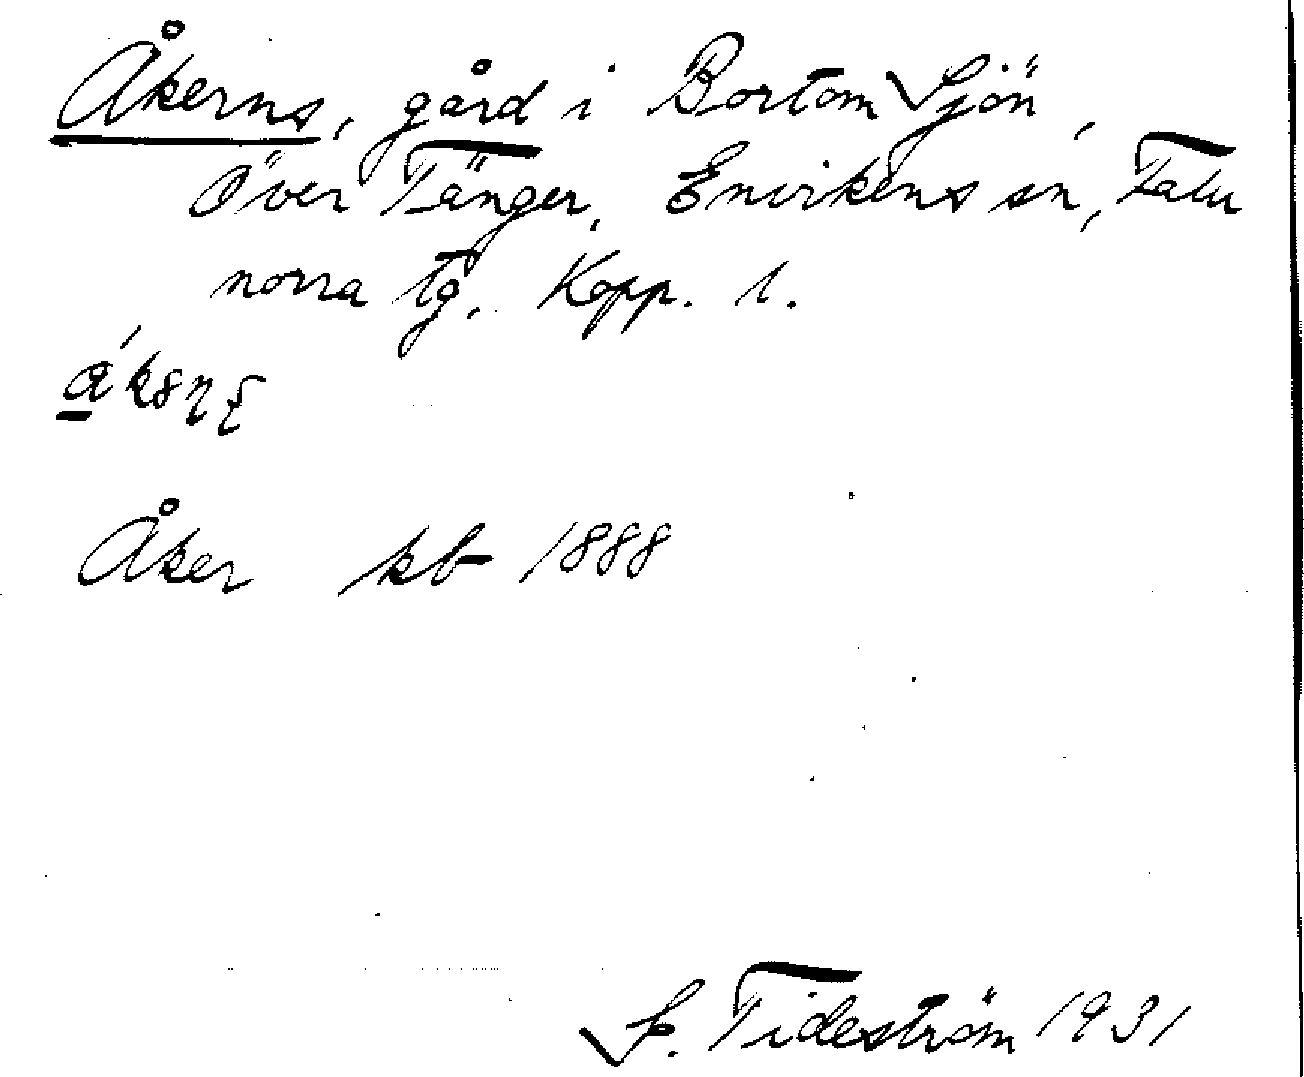 Åkerns, gård i Bortom Sjön,
Över Tänger, Envikens sn, Falu
norra tg. Kopp. l.
Åker kb 1888
S. Tideström 1931